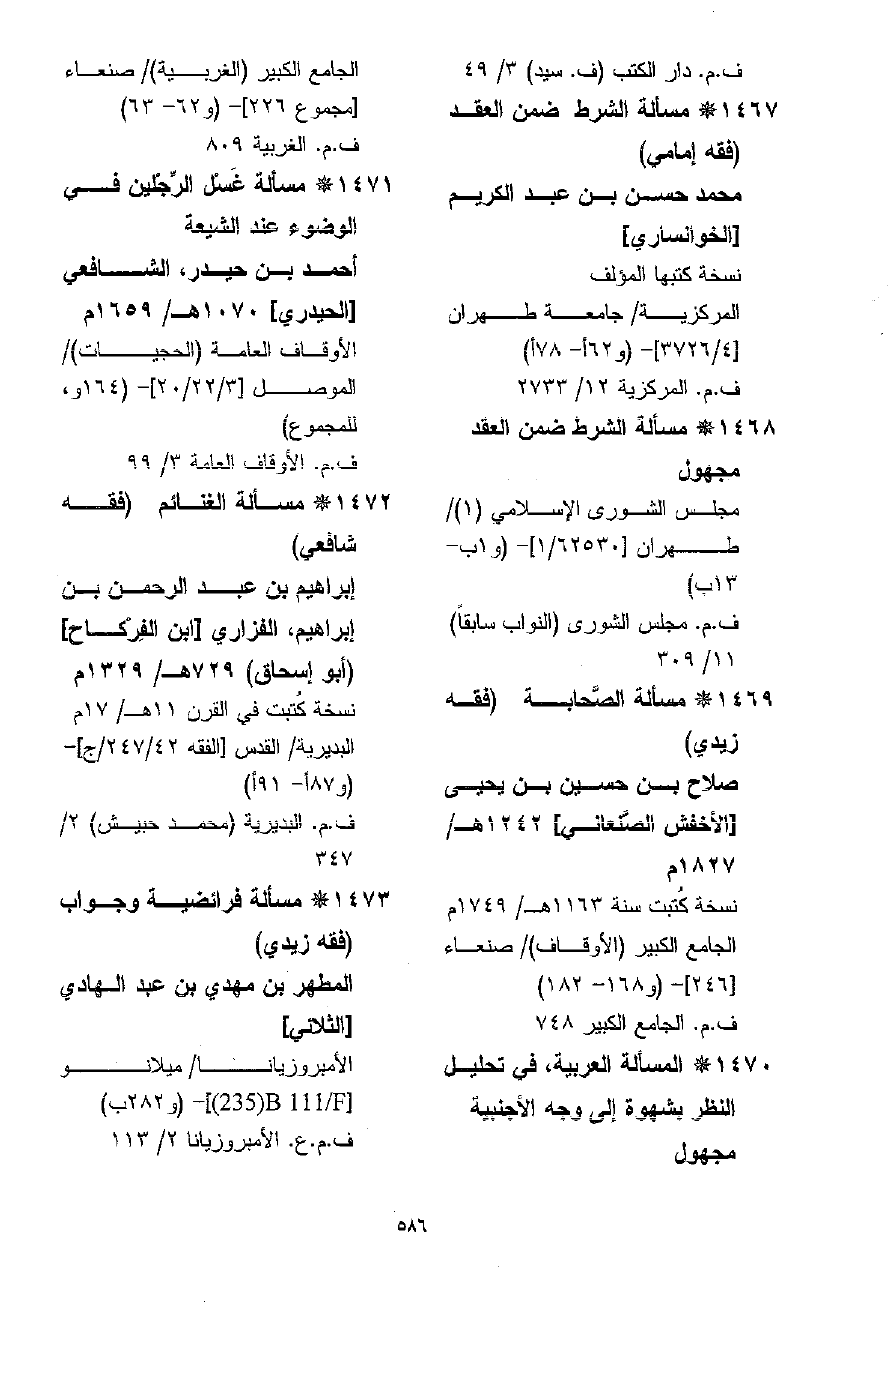 ف.م. دار الكتب (ف. سيد) ٣/ ٤٩
١٤٦٧* مسألة الشرط ضمن العقد
(فقه إمامي)
محمد حسن بن عبد الكريم
[الخوانساري]
نسخة كتبها المؤلف
المركزية/ جامعة طهران
[٣٧٢٦/٤]- (و٦٢أ- ٧٨أ)
ف.م. المركزية ١٢/ ٢٧٣٣
١٤٦٨* مسألة الشرط ضمن العقد
مجهول
مجلس الشورى الإسلامي (١)/
طهران [١/٦٢٥٣٠]- (و١ب-
١٣ب)
ف.م. مجلس الشورى (النواب سابقاً)
١١/ ٣٠٩
١٤٦٩* مسألة الصَّحابة (فقه
زيدي)
صلاح بن حسين بن يحيى
[الأخفش الصَّنعاني] ١٢٤٢هـ/
١٨٢٧م
نسخة كُتبت سنة ١١٦٣هـ/ ١٧٤٩م
الجامع الكبير (الأوقاف)/ صنعاء
[٢٤٦]- (و١٦٨- ١٨٢)
ف.م. الجامع الكبير ٧٤٨
١٤٧٠* المسألة العربية، في تحليل
النظر بشهوة إلى وجه الأجنبية
مجهول
الجامع الكبير (الغربية)/ صنعاء
[مجموع ٢٢٦]- (و٦٢- ٦٣)
ف.م. الغربية ٨٠٩
١٤٧١* مسألة غَسل الرِّجْلين في
الوضوء عند الشيعة
أحمد بن حيدر، الشافعي
[الحيدري] ١٠٧٠هـ/ ١٦٥٩م
الأوقاف العامة (الحجيات)/
الموصل [٢٠/٢٢/٣]- (١٦٤و،
للمجموع)
ف.م. الأوقاف العامة ٣/ ٩٩
١٤٧٢* مسألة الغنائم (فقه
شافعي)
إبراهيم بن عبد الرحمن بن
إبراهيم، الفزاري [ابن الفِركاح]
(أبو إسحاق) ٧٢٩هـ/ ١٣٢٩م
نسخة كُتبت في القرن ١١هـ/ ١٧م
البديرية/ القدس [الفقه ٢٤٧/٤٢/ج]-
(و٨٧أ- ٩١أ)
ف.م. البديرية (محمد حبيش) ٢/
٣٤٧
١٤٧٣* مسألة فرائضية وجواب
(فقه زيدي)
المطهر بن مهدي بن عبد الهادي
[الثلاثي]
الأمبروزيانا/ ميلانو
[235)B 111/F)]- (و٢٨٢ب)
ف.م.ع. الأمبروزيانا ٢/ ١١٣
٥٨٦